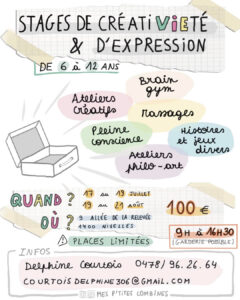 STAGES DE CRÉATIVIETÉ
& D'EXPRESSION
DE 6 à 12 ANS
Brain
gym
Ateliers
Créatifs
Massages
Pleine
conscience
Histoires
et jeux
divers
Ateliers
philo-art
QUAND ?
17 au 19 JUILLET
19 au 21 AOÛT
OÙ ?
9 ALLÉE DE LA RELEVÉE
1400 NIVELLES
100 €
9H à 16H30
(GARDERIE POSSIBLE)
! PLACES LIMITÉES
INFOS
Delphine Courtois 0478/96.26.64
COURTOISDELPHINE306@GMAIL.COM
MES P'TITES COMBINES